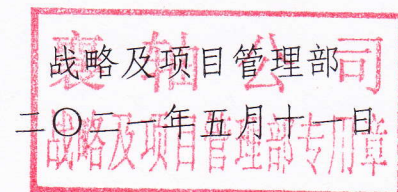 襄轴公司
战略及项目管理部
二〇二一年五月十一日
战略及项目管理部专用章